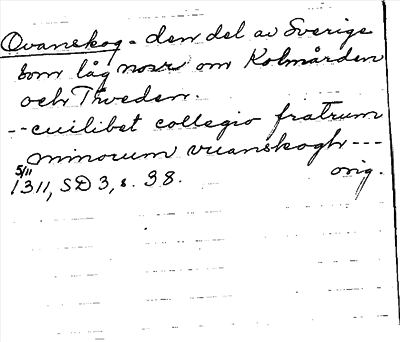 Ovanskog - den del av Sverige
som låg norr om Kolmården
och Tiveden.
-- cuilibet collegio fratrum
minorum vvanskogh ---
5/11 1311, SD 3, s. 38. orig.